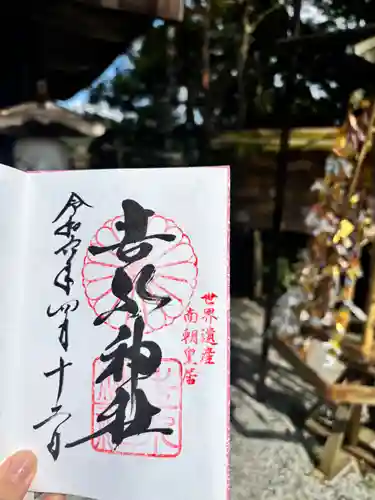 世界遺産
南朝皇居
吉水神社
令和六年四月十二日